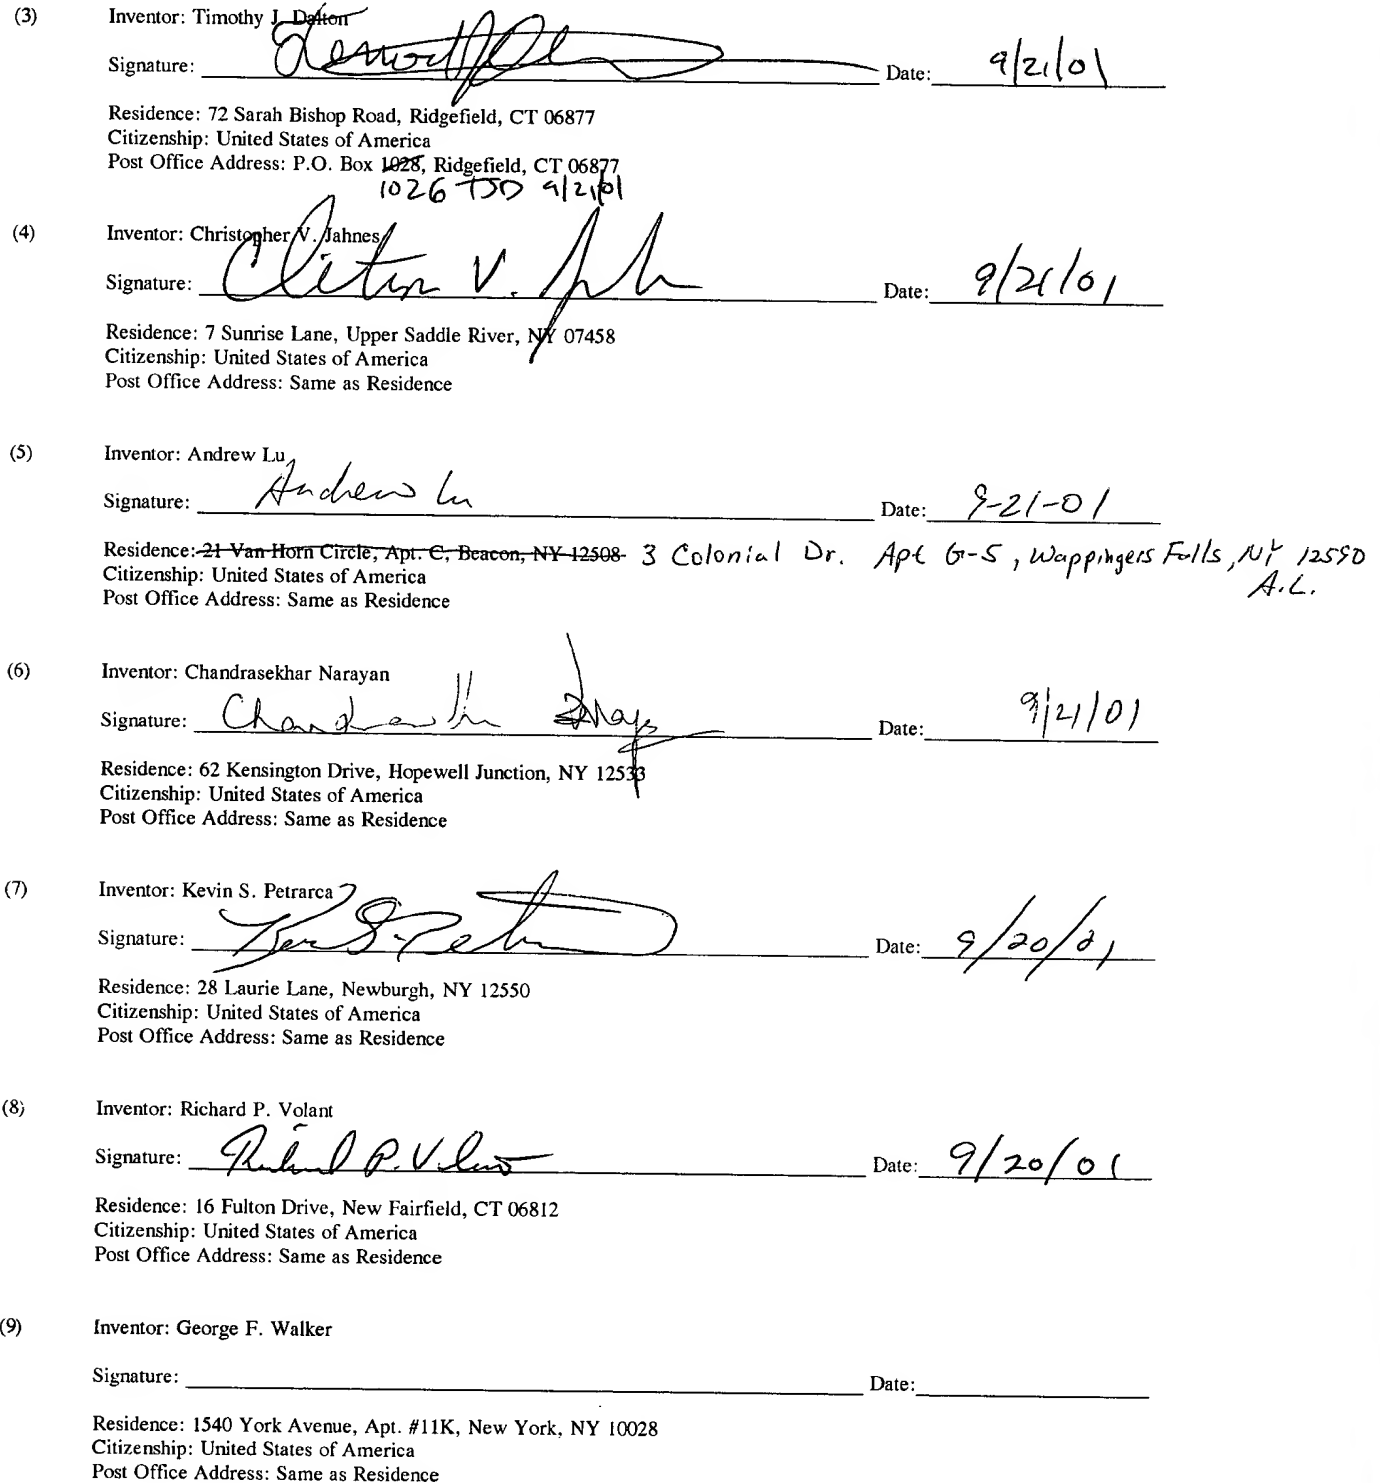 (3) Inventor: Timothy J. Dalton
Signature: Date: 9/21/01
Residence: 72 Sarah Bishop Road, Ridgefield, CT 06877
Citizenship: United States of America
Post Office Address: P.O. Box 1028, Ridgefield, CT 06877
1026 TJD 9/21/01
(4) Inventor: Christopher V. Jahnes
Signature: V. Date: 9/21/01
Residence: 7 Sunrise Lane, Upper Saddle River, NY 07458
Citizenship: United States of America
Post Office Address: Same as Residence
(5) Inventor: Andrew Lu
Signature: Andrew Lu Date: 9-21-01
Residence: 21 Van Horn Circle, Apt. C, Beacon, NY 12508 3 Colonial Dr. Apt G-5, Wappingers Falls, NY 12590
Citizenship: United States of America A.L.
Post Office Address: Same as Residence
(6) Inventor: Chandrasekhar Narayan
Signature: Date: 9/21/01
Residence: 62 Kensington Drive, Hopewell Junction, NY 12533
Citizenship: United States of America
Post Office Address: Same as Residence
(7) Inventor: Kevin S. Petrarca
Signature: Date: 9/20/01
Residence: 28 Laurie Lane, Newburgh, NY 12550
Citizenship: United States of America
Post Office Address: Same as Residence
(8) Inventor: Richard P. Volant
Signature: Richard P. Volant Date: 9/20/01
Residence: 16 Fulton Drive, New Fairfield, CT 06812
Citizenship: United States of America
Post Office Address: Same as Residence
(9) Inventor: George F. Walker
Signature: Date:
Residence: 1540 York Avenue, Apt. #11K, New York, NY 10028
Citizenship: United States of America
Post Office Address: Same as Residence